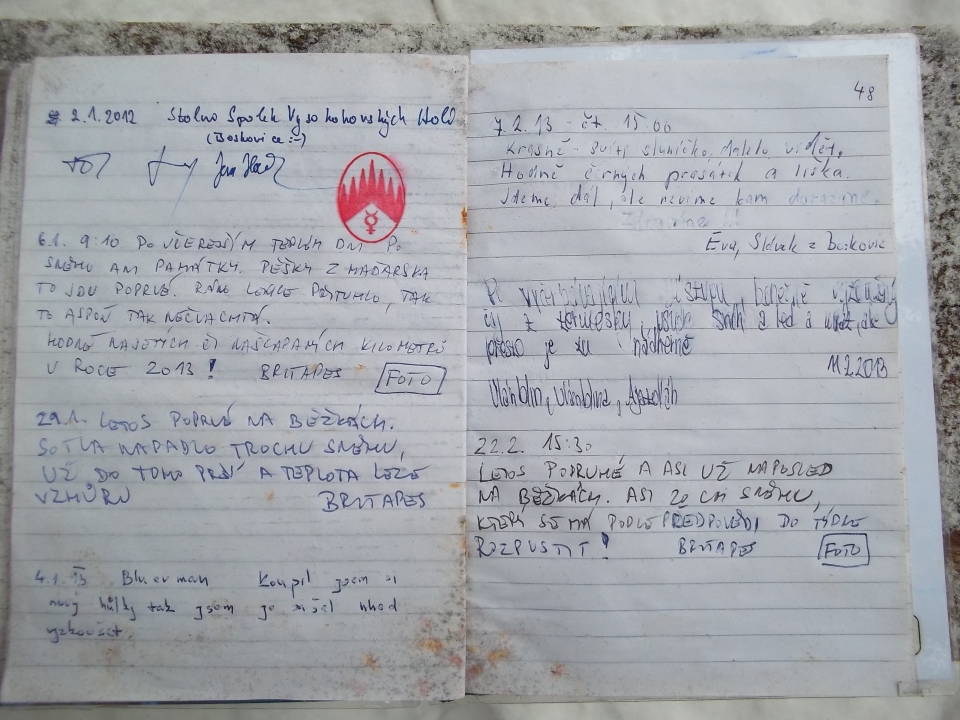 2.1.2012 Stolno Spolek Vysokohorských Holů
(Boskovice :-)
6.1. 9:10 PO VČEREJŠÍM TEPLÉM DNI PO
SNĚHU ANI PAMÁTKY. PĚŠKY Z MAĎARSKA
TO JDU POPRVÉ. RÁNO LEHCE PŘITUHLO, TAK
TO ASPOŇ TAK NEČVACHTÁ.
HODNĚ NAJETÝCH ČI NAŠLAPANÝCH KILOMETRŮ
V ROCE 2013! BRITAPES FOTO
29.1. LETOS POPRVÉ NA BĚŽKÁCH.
SOTVA NAPADLO TROCHU SNĚHU,
UŽ DO TOHO PRŠÍ A TEPLOTA LEZE
VZHŮRU BRITAPES
4.1. 13 Koupil jsem si
nový hůlky tak jsem je šel
vyzkoušet.
48
7.2.13 - čt. 15:00
Krásně - svítí sluníčko, daleko vidět.
Hodně černých prasátek a liška.
Jdeme dál, ale nevíme kam dorazíme.
Zdravíme !!
Eva, Slávek z Boskovic
výstupu,
z sníh a led a
přesto je tu nádherně
11.2.2013
22.2. 15:30
LETOS PODRUHÉ A ASI UŽ NAPOSLED
NA BĚŽKÁCH. ASI 20 CM SNĚHU,
KTERÝ SE MÁ PODLE PŘEDPOVĚDI DO TÝDNE
ROZPUSTIT! BRITAPES FOTO